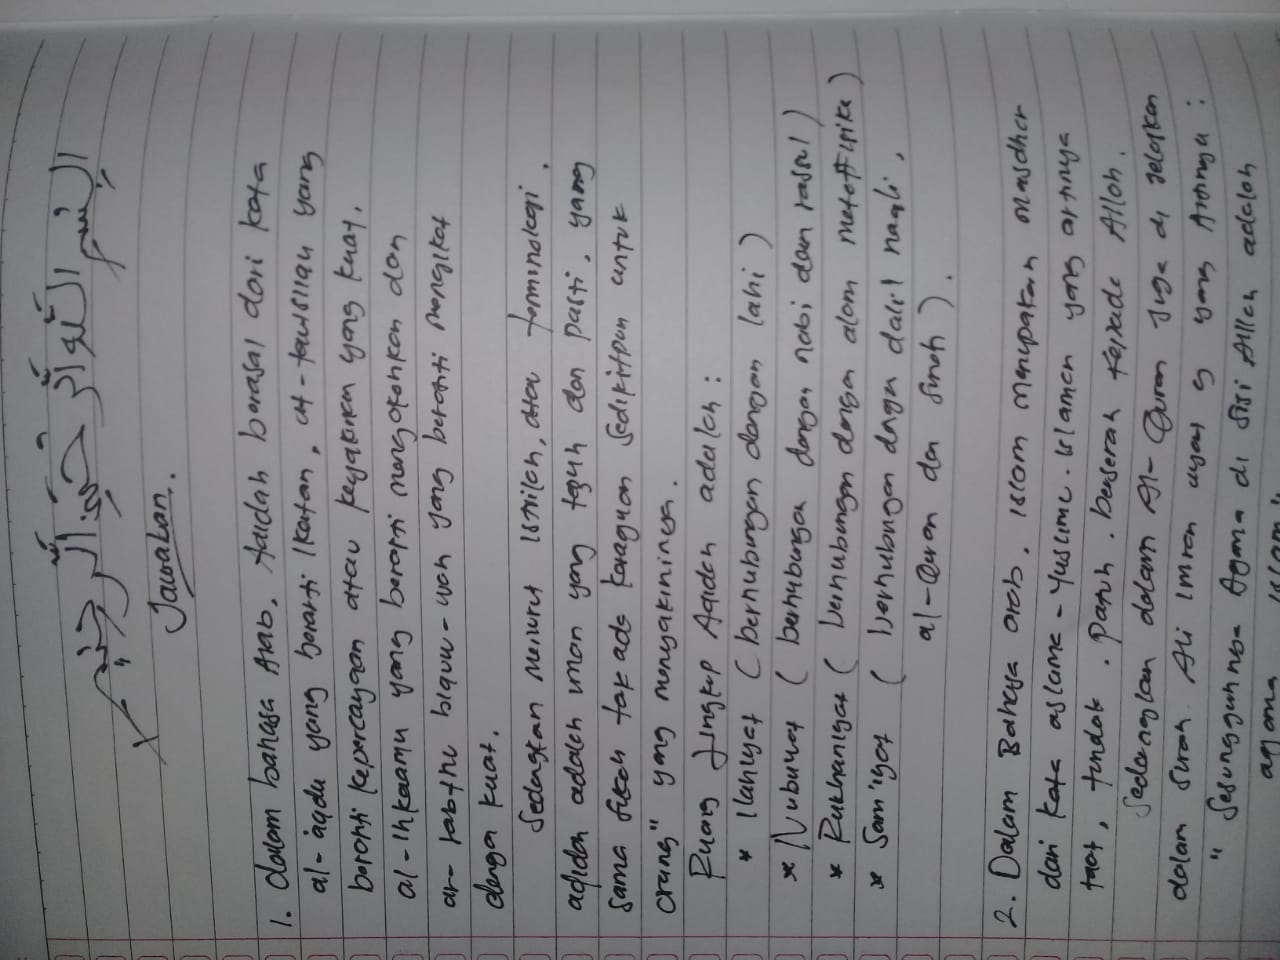 بسم الله الرحمن الرحيم
Jawaban.
1. Dalam bahasa Arab, Aqidah berasal dari kata
al-aqdu yang berarti ikatan, at-tautsiqu yang
berarti kepercayaan atau keyakinan yang kuat,
al-ihkaamu yang berarti mengokohkan dan
ar-rabthu biquw-wah yang berarti mengikat
denga kuat.
Sedagkan menurut istilah, atau terminologi.
aqidah adalah iman yang teguh dan pasti, yang
sama tak ada keraguan sedikitpun untuk
orang" yang menyakininya.
Ruang Lingkup Aqidah adalah :
* Ilahiyat (berhubungan dengan ilahi)
* Nubuwat (berhubungan dengan nabi dan rasul)
* Rukhaniyat (berhubungan dengan alam metafisika)
* Sam'iyat (berhubungan dngan dalil naqli,
al-Quran dan sunah).
2. Dalam Bahasa arab, islam merupakan masdhar
dari kata aslama - Yuslimu - islaman yang artinya
taat, tunduk, Patuh, berserah kepada Allah.
Sedangkan dalam Al-Quran juga di jelaskan
dalam surah Ali imran ayat 19 yang Artinya :
" Sesungguhnya Agama di sisi Allah adalah
agama islam"